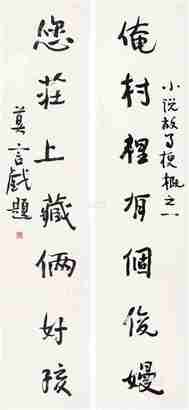 俺村裡有個俊嫚
小说故事梗概之一
您莊上藏倆好孩
莫言戲題